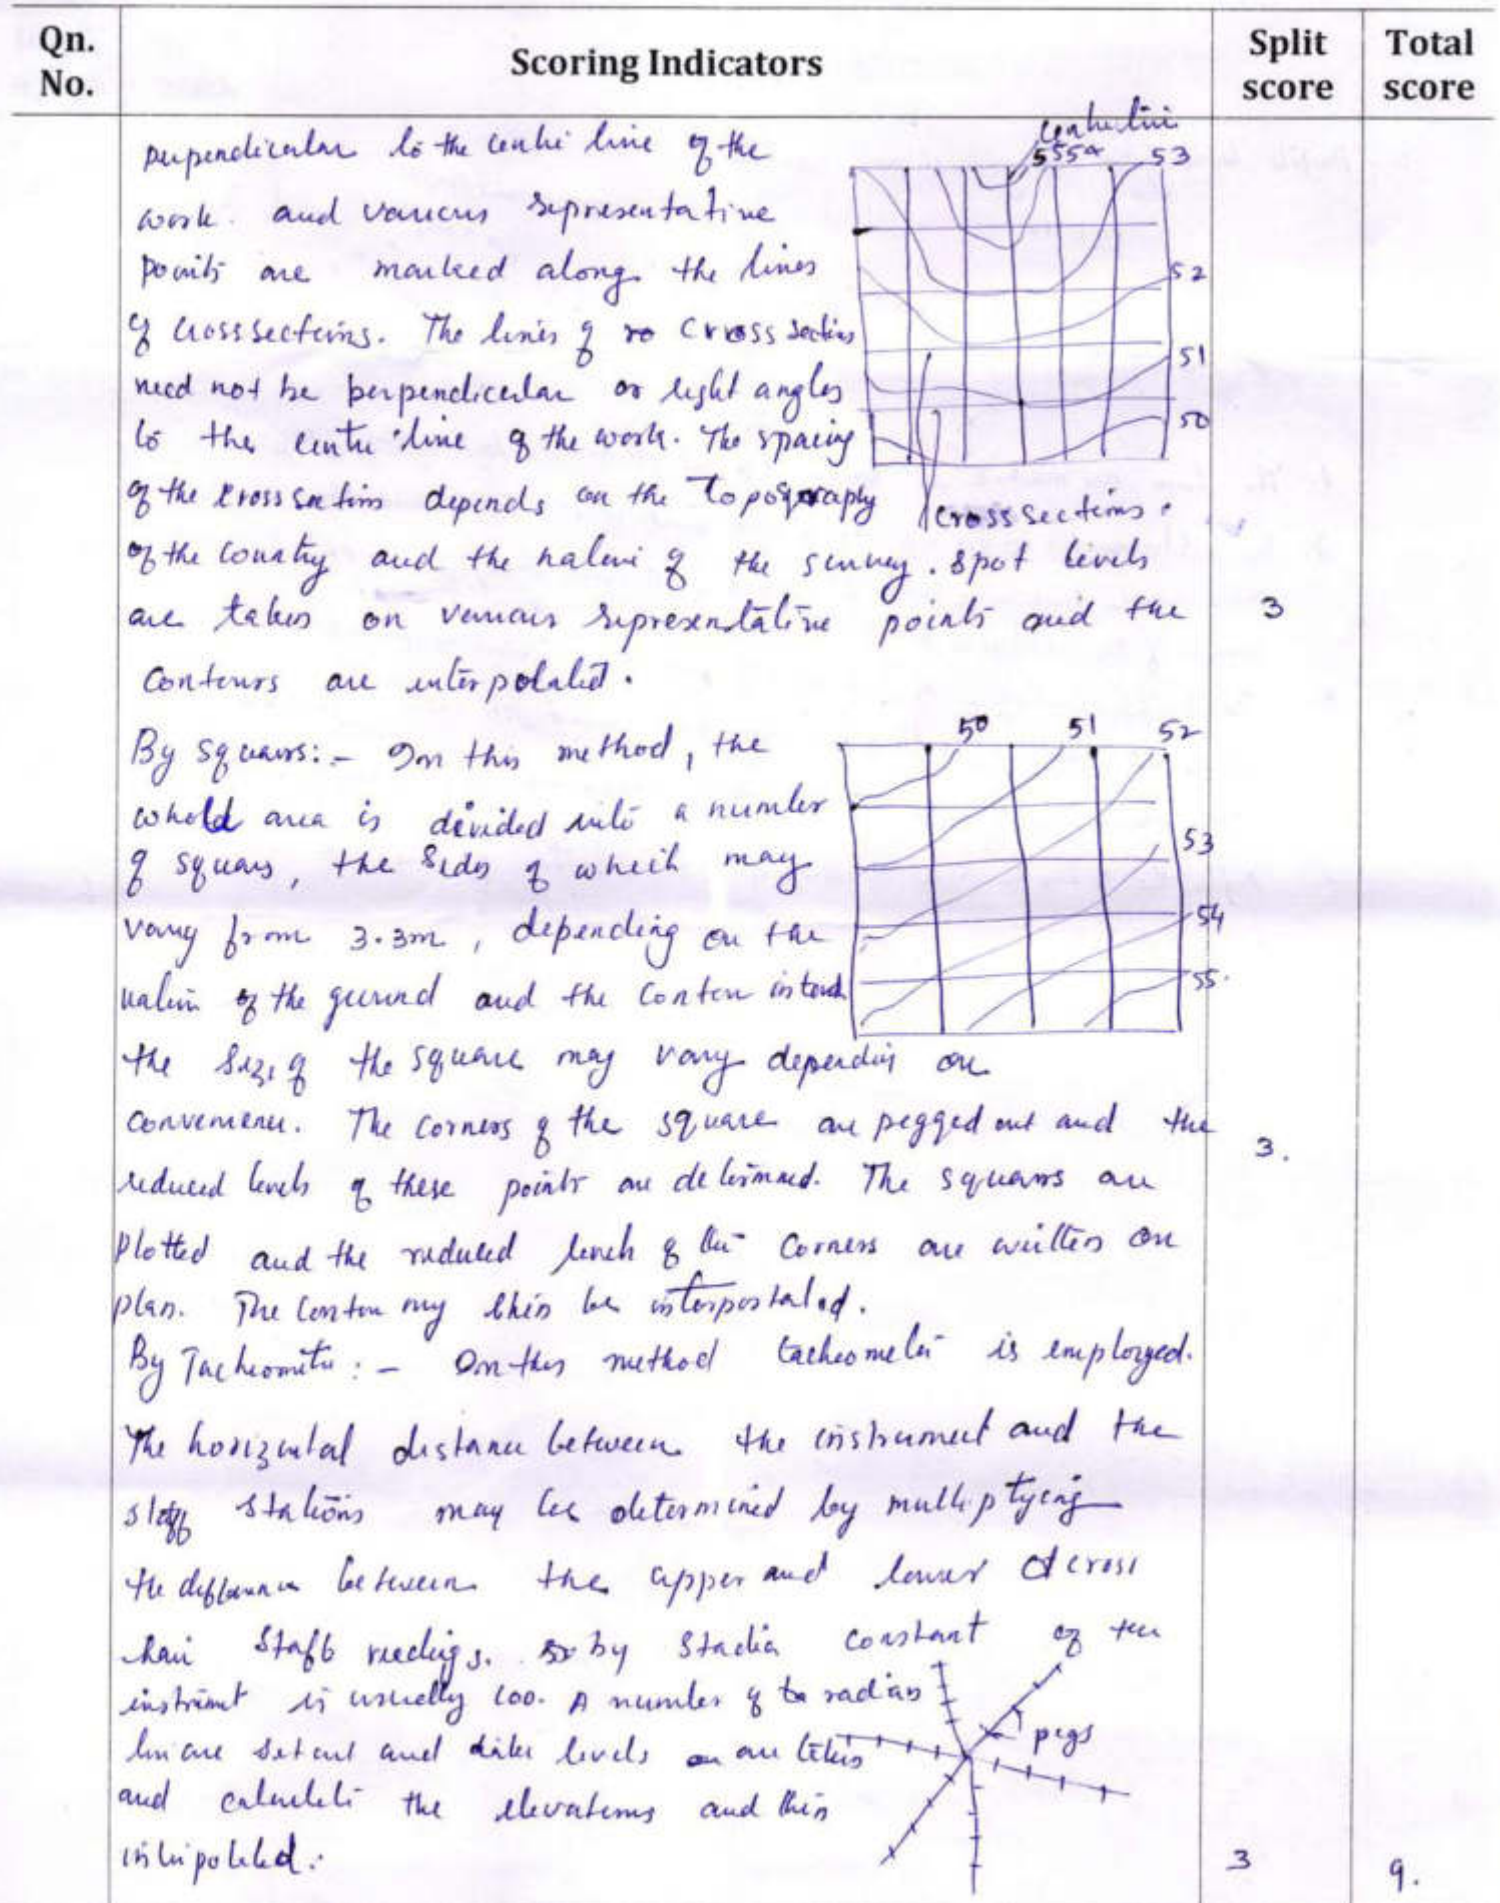 Qn. No.
Scoring Indicators
Split score
Total score
perpendicular to the centre line of the
work. and various representative
points are marked along the lines
of cross sections. The lines of cross sections
need not be perpendicular or right angles
to the centre line of the work. The spacing
of the cross sections depends on the Topography
of the country and the nature of the survey. Spot levels
are taken on various representative points and the
contours are interpolated.
3
centreline
55 54 53
52
51
50
cross sections.
By squares:- In this method, the
whole area is divided into a number
of squares, the sides of which may
vary from 3.3m, depending on the
nature of the ground and the contour
the size of the square may vary depending on
convenience. The corners of the square are pegged out and the
reduced levels of these points are determined. The squares are
plotted and the reduced levels of the corners are written on
plan. The contour may then be
3.
50 51 52
53
54
55.
By Tacheometer:- In this method tacheometer is employed.
The horizontal distance between the instrument and the
staff stations may be determined by multiplying
the difference between the upper and lower cross
hair staff readings. by stadia constant of the
instrument is usually 100. A number of radial
line are set out and levels are taken
and calculate the elevations and then
interpolated.
pegs
3
9.